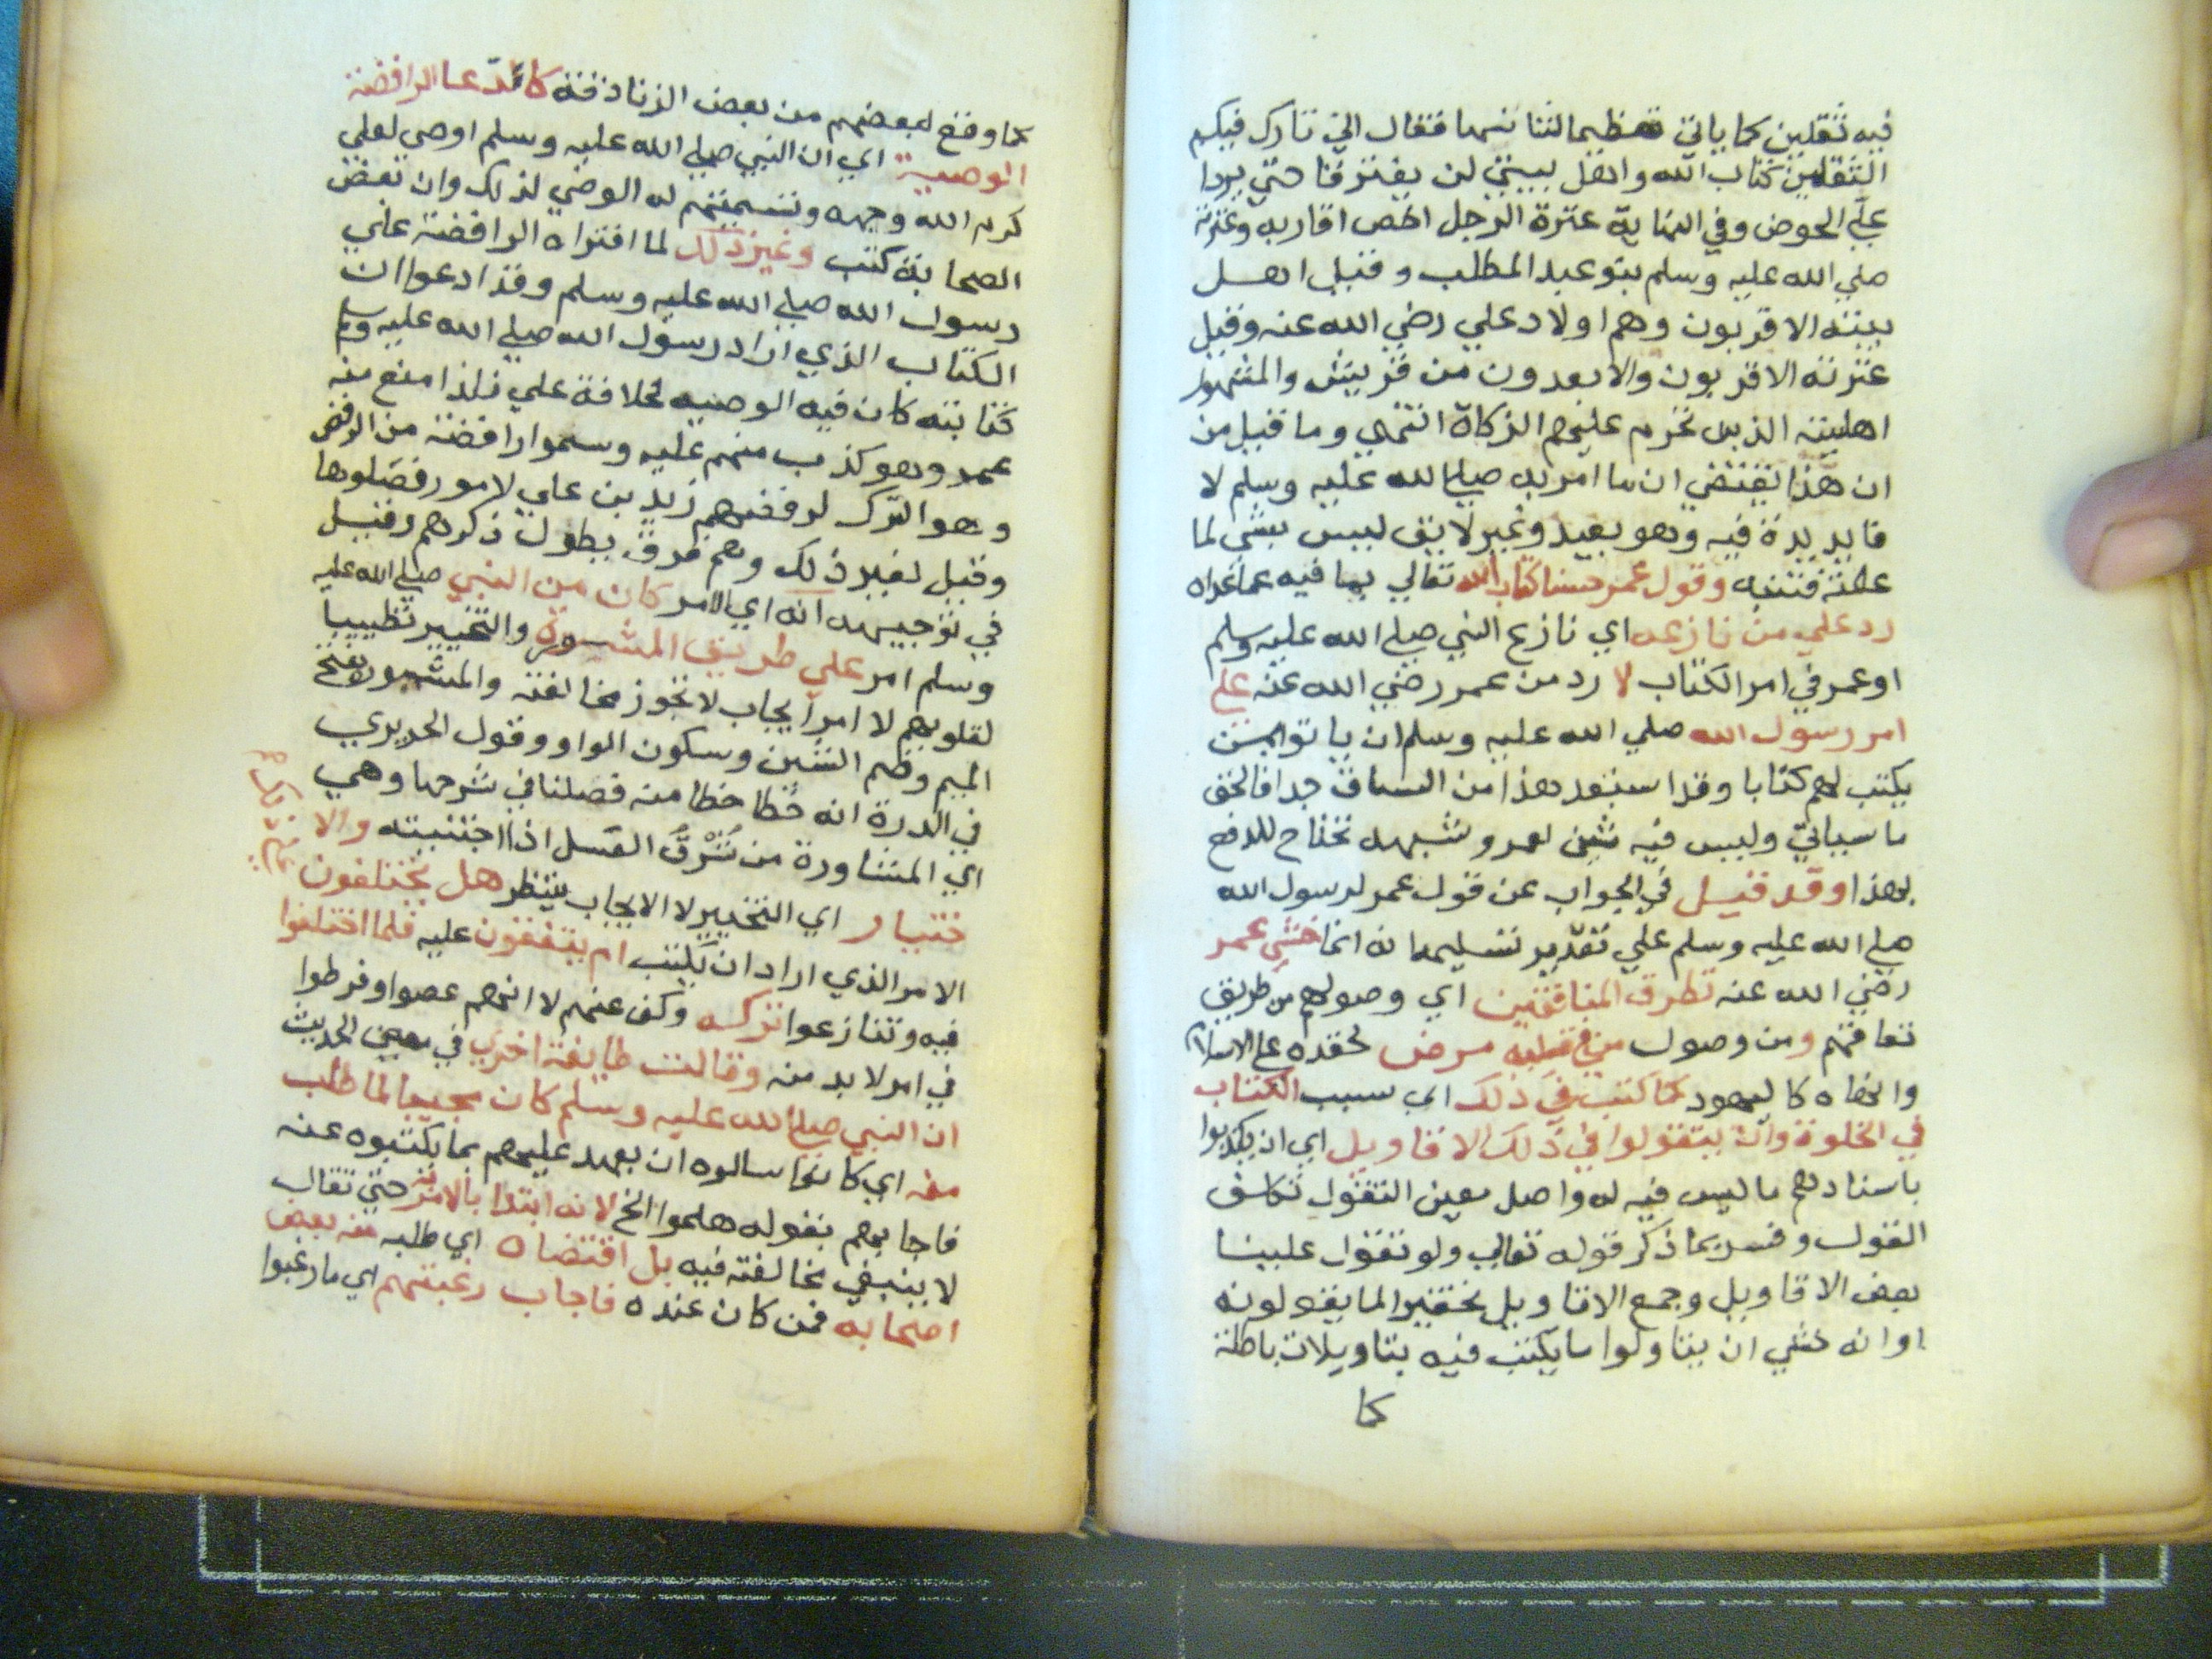 فيه ثقلين كما ياتي تعظيما لشانهما فقال اني تارك فيكم
الثقلين كتاب الله واهل بيتي لن يفترقا حتي يردا
علي الحوض وفي النهاية عترة الرجل اخص اقاربه وعترته
صلي الله عليه وسلم بنو عبد المطلب وقيل اهل
بيته الاقربون وهم اولاد علي رضي الله عنه وقيل
عترته الاقربون والابعدون من قريش والمشهور
اهل بيته الذين تحرم عليهم الزكاة انتهي وما قيل من
ان هذا يقتضي ان ما امر به صلي الله عليه وسلم لا
فايدة فيه وهو بعيد وغير لايق ليس بشي لما
علمته فتنبه وقول عمر حسبنا كتاب الله تعالي بما فيه عما عداه
رد علي من نازعه اي نازع النبي صلي الله عليه وسلم
او عمر في امر الكتاب لا رد من عمر رضي الله عنه علي
امر رسول الله صلي الله عليه وسلم ان ياتوا بمن
يكتب لهم كتابا وقد استبعد هذا من السياق جدا فالحق
ما سياتي وليس فيه شين لعمر وشبهه تحتاج للدفع
بهذا وقد قيل في الجواب عن قول عمر لرسول الله
صلي الله عليه وسلم علي تقدير تسليمه انه انما خشي عمر
رضي الله عنه تطرق المنافقين اي وصولهم من طريق
نفاقهم ومن وصول من في قلبه مرض لحقده علي الاسلام
واخفاه كاليهود لما كتب في ذلك اي سبب الكتاب
في الخلوة وان يتقولوا في ذلك الاقاويل اي ان يكذبوا
باسنادهم ما ليس فيه له واصل معين التقول تكلف
القول وفسر بما ذكر قوله تعالي ولو تقول علينا
بعض الاقاويل وجمع الاقاويل تحقيرا لما يقولونه
او انه خشي ان يتاولوا ما يكتب فيه بتاويلات باطلة
كما
كما وقع لبعضهم من بعض الزنادقة كادعا الرافضة
الوصية اي ان النبي صلي الله عليه وسلم اوصي لعلي
كرم الله وجهه وتسميتهم له الوصي لذلك وان بعض
الصحابة كتب وغير ذلك لما افتراه الرافضة علي
رسول الله صلي الله عليه وسلم وقد ادعوا ان
الكتاب الذي اراد رسول الله صلي الله عليه وسلم
كتابته كان فيه الوصيه بخلافة علي فلذا منع منه
عمر وهو كذب منهم عليه وسموا رافضة من الرفض
وهو الترك لرفضهم زيد بن علي لامور فصلوها
وقيل لغير ذلك وهم فرق يطول ذكرهم وقيل
في توجيهه انه اي الامر كان من النبي صلي الله عليه
وسلم امر علي طريق المشورة والتخيير تطييبا
لقلوبهم لا امر ايجاب لا تجوز مخالفته والمشورة بفتح
الميم وضم الشين وسكون الواو وقول الحريري
في الدرة انه خطا خطا منه فصلنا في شرحها وهي
اي المشاورة من شرت العسل اذا اجتنيته والا
ختبار اي التخيير لا الايجاب لينظر هل يختلفون
الامر الذي اراد ان يكتب ام يتفقون عليه فلما اختلفوا
فيه وتنازعوا تركه وكف عنهم لا انهم عصوا وفرطوا
في امر لا بد منه وقالت طايفة اخري في معني الحديث
ان النبي صلي الله عليه وسلم كان مجيبا لما طلب
منه اي كانما سالوه ان يعهد عليهم بما يكتبوه عنه
فاجابهم بقوله هلموا الخ لانه ابتدا بالامر به حتي تقال
لا ينبغي مخالفته فيه بل اقتضاه اي طلبه منه بعض
اصحابه فمن كان عنده فاجاب رغبتهم اي ما رغبوا